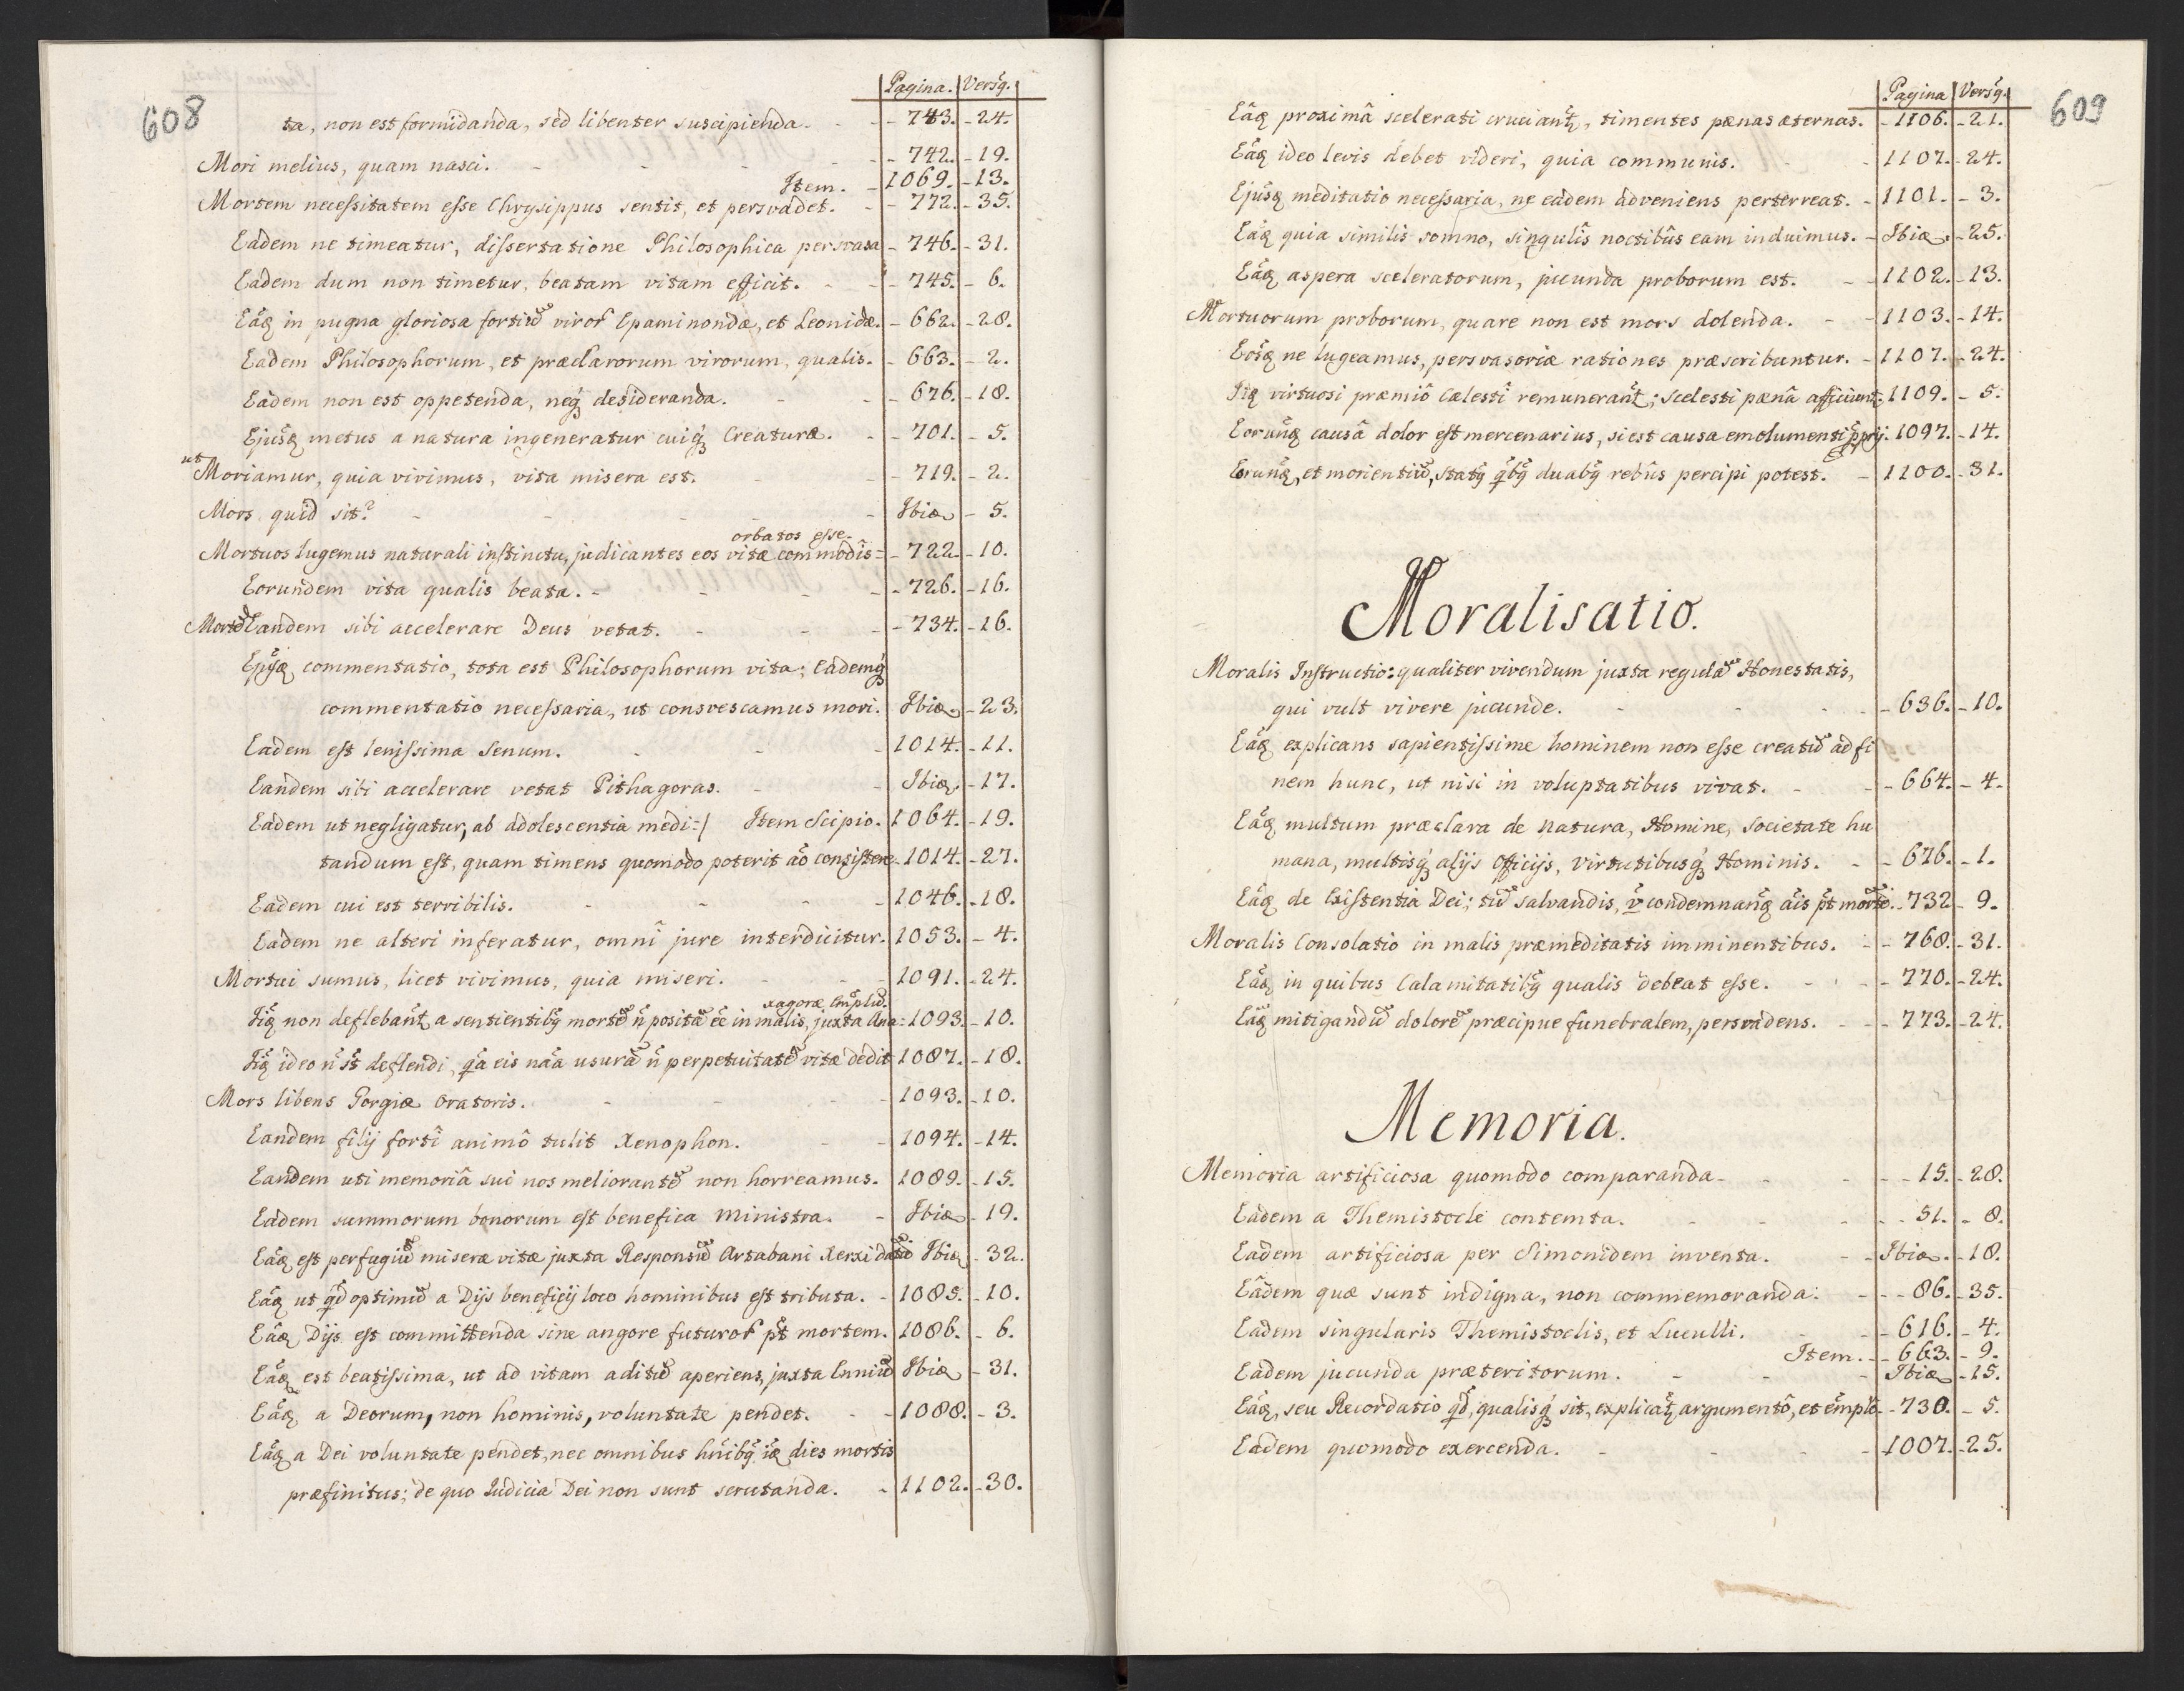 608
Pagina. Versq.
ta, non est formidanda, sed libenter suscipienda. - - 743. - 24.
Mori melius, quam nasci. - - - - 742. - 19.
Item. - 1069. - 13.
Mortem necessitatem esse Chrysippus sentit, et persvadet. - - 772. - 35.
Eadem ne timeatur, dissertatione Philosophica persvasa - 746. - 31.
Eadem dum non timetur, beatam vitam efficit. - - 745. - 6.
Eãq in pugna gloriosa fortiũ viror Epaminondæ, et Leonidæ. - 662. - 28.
Eadem Philosophorum, et præclarorum virorum, qualis. - 663. - 2.
Eadem non est oppetenda, neq desideranda. - - 676. - 18.
Ejusq metus a natura ingeneratur cuiq Creaturæ. - - 701. - 5.
ut Moriamur, quia vivimus, vita misera est. - - 719. - 2.
Mors quid sit? - - - - Ibiq - 5.
orbatos esse.
Mortuos lugemus naturali instinctu, judicantes eos vitæ commodis= - 722. - 10.
Eorundem vita qualis beata. - - - - 726. - 16.
Mortẽ Eandem sibi accelerare Deus vetat. - - - 734. - 16.
Ejusq commentatio, tota est Philosophorum vita; Eademq
commentatio necessaria, ut consvescamus mori. Ibiq - 23.
Eadem est lenissima Senum. - - - 1014. - 11.
Eandem sibi accelerare vetat Pithagoras. - - Ibiq. - 17.
Eadem ut negligatur, ab adolescentia medi=/ Item Scipio. 1064. - 19.
tandum est, quam timens quomodo poterit aõ consistere - 1014. - 27.
Eadem cui est terribilis. - - - - 1046. - 18.
Eadem ne alteri inferatur, omnî jure interdicitur. 1053. - 4.
Mortui sumus, licet vivimus, quia miseri. - - - 1091. - 24.
xagoræ Emplũ.
Iiq non deflebant a sentientibq mortẽ ñ positã eê in malis, juxta Ana= 1093. - 10.
Iiq ideo ñ st deflendi, qa eis nãa usurã ñ perpetuitatẽ vitæ dedit 1087. - 18.
Mors libens Gorgiæ Oratoris. - - - - 1093. - 10.
Eandem filij fortî animô tulit Xenophon. - - 1094. - 14.
Eandem uti memoriâ sui nos meliorantẽ non horreamus. 1089. - 15.
Eadem summorum bonorum est benefica Ministra. - Ibiq - 19.
Eãq est perfugiũ miseræ vitæ juxta Responsũ Artabani Xerxi datũ Ibiq - 32.
Eãq ut qd optimũ a Dijs beneficij loco hominibus est tributa. - 1085. - 10.
Eãq Dijs est committenda sine angore futuror pt mortem. 1086. - 6.
Eãq est beatissima, ut ad vitam aditũ aperiens, juxta Enniũ Ibiq - 31.
Eãq a Deorum, non hominis, voluntate pendet. - - 1088. - 3.
Eãq a Dei voluntate pendet, nec omnibus hñibq iq dies mortis
præfinitus; de quo Judicia Dei non sunt scrutanda. - 1102. - 30.
609
Pagina Versq.
Eãq proximâ scelerati cruciant, timentes pænas æternas. - 1106. - 21.
Eãq ideo levis debet videri, quia communis. - - 1107. - 24.
Ejusq meditatio necessaria, ne eadem adveniens perterreat. - 1101. - 3.
Eãq quia similis somno, singulis noctibus eam induimus. - Ibiq. - 25.
Eãq aspera sceleratorum, jucunda proborum est. - - 1102. - 13.
Mortuorum proborum, quare non est mors dolenda. - - 1103. - 14.
Eosq ne lugeamus, persvasoriæ rationes præscribuntur. - 1107. - 24.
Iiq virtuosi præmiô Cælesti remunerant; Scelesti pænâ afficiunt. 1109. - 5.
Eorunq causâ dolor est mercenarius, si est causa emolumenti pprij. 1097. - 14.
Eorunq, et morientiũ, statq qbq duabq rebus percipi potest. - 1100. - 31.
Moralisatio.
Moralis Instructio: qualiter vivendum juxta regulã Honestatis,
qui vult vivere jucunde. - - - - 636. - 10.
Eãq explicans sapientissime hominem non esse creatũ ad fi
nem hunc, ut nisi in voluptatibus vivat. - - 664. - 4.
Eãq multum præclara de Natura, Homine, Societate hu
mana, multisq alijs Officijs, Virtutibusq Hominis. - - 676. - 1.
Eãq de Existentia Dei; tũ salvandis, v condemnanq ãis pt mortẽ. - 732 - 9.
Moralis Consolatio in malis præmeditatis imminentibus. - - 768. - 31.
Eãq in quibus Calamitatibq qualis debeat esse. - - - 770. - 24.
Eãq mitigandũ dolorẽ præcipue funebralem, persvadens. - - 773. - 24.
Memoria.
Memoria artificiosa quomodo comparanda - - - - 15. - 28.
Eadem a Themistocle contemta. - - - - 51. - 8.
Eadem artificiosa per Simonidem inventa. - - Ibiq. - 18.
Eâdem quæ sunt indigna, non commemoranda. - - - 86. - 35.
Eadem singularis Themistoclis, et Luculli. - - 616. - 4.
Item. - - 663. - 9.
Eadem jucunda præteritorum. - - - Ibiq - 15.
Eãq, seu Recordatio qd, qualisq sit, explicat argumentô, et Emplô. - 730. - 5.
Eadem quomodo exercenda. - - - - 1007. - 25.